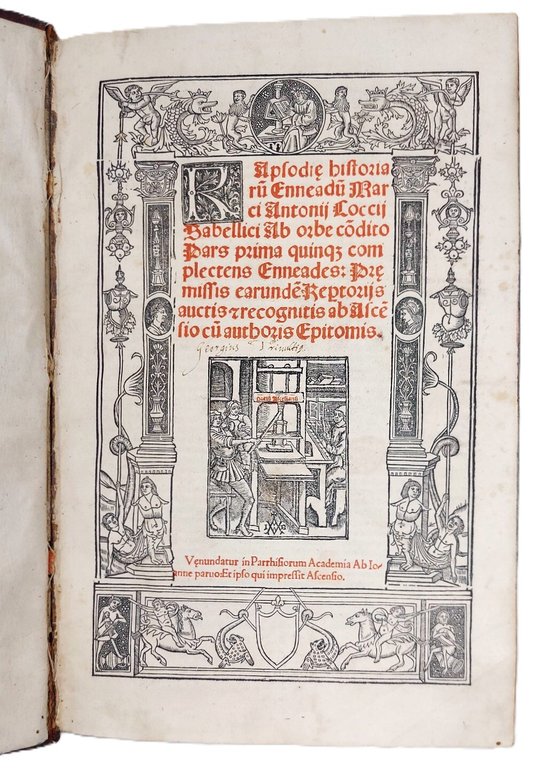 Rapsodię historia
rū Enneadū Mar
ci Antonij Coccij
Sabellici Ab orbe cōdito
Pars prima quinqꝫ com
plectens Enneades: Prę
missis earundē Reptorijs
auctis ⁊ recognitis ab Ascē
sio cū authoris Epitomis.
Georgius
Prelū Ascēsianū
Vęnundatur in Parrhisiorum Academia Ab Io-
anne paruo: Et ipso qui impressit Ascensio.